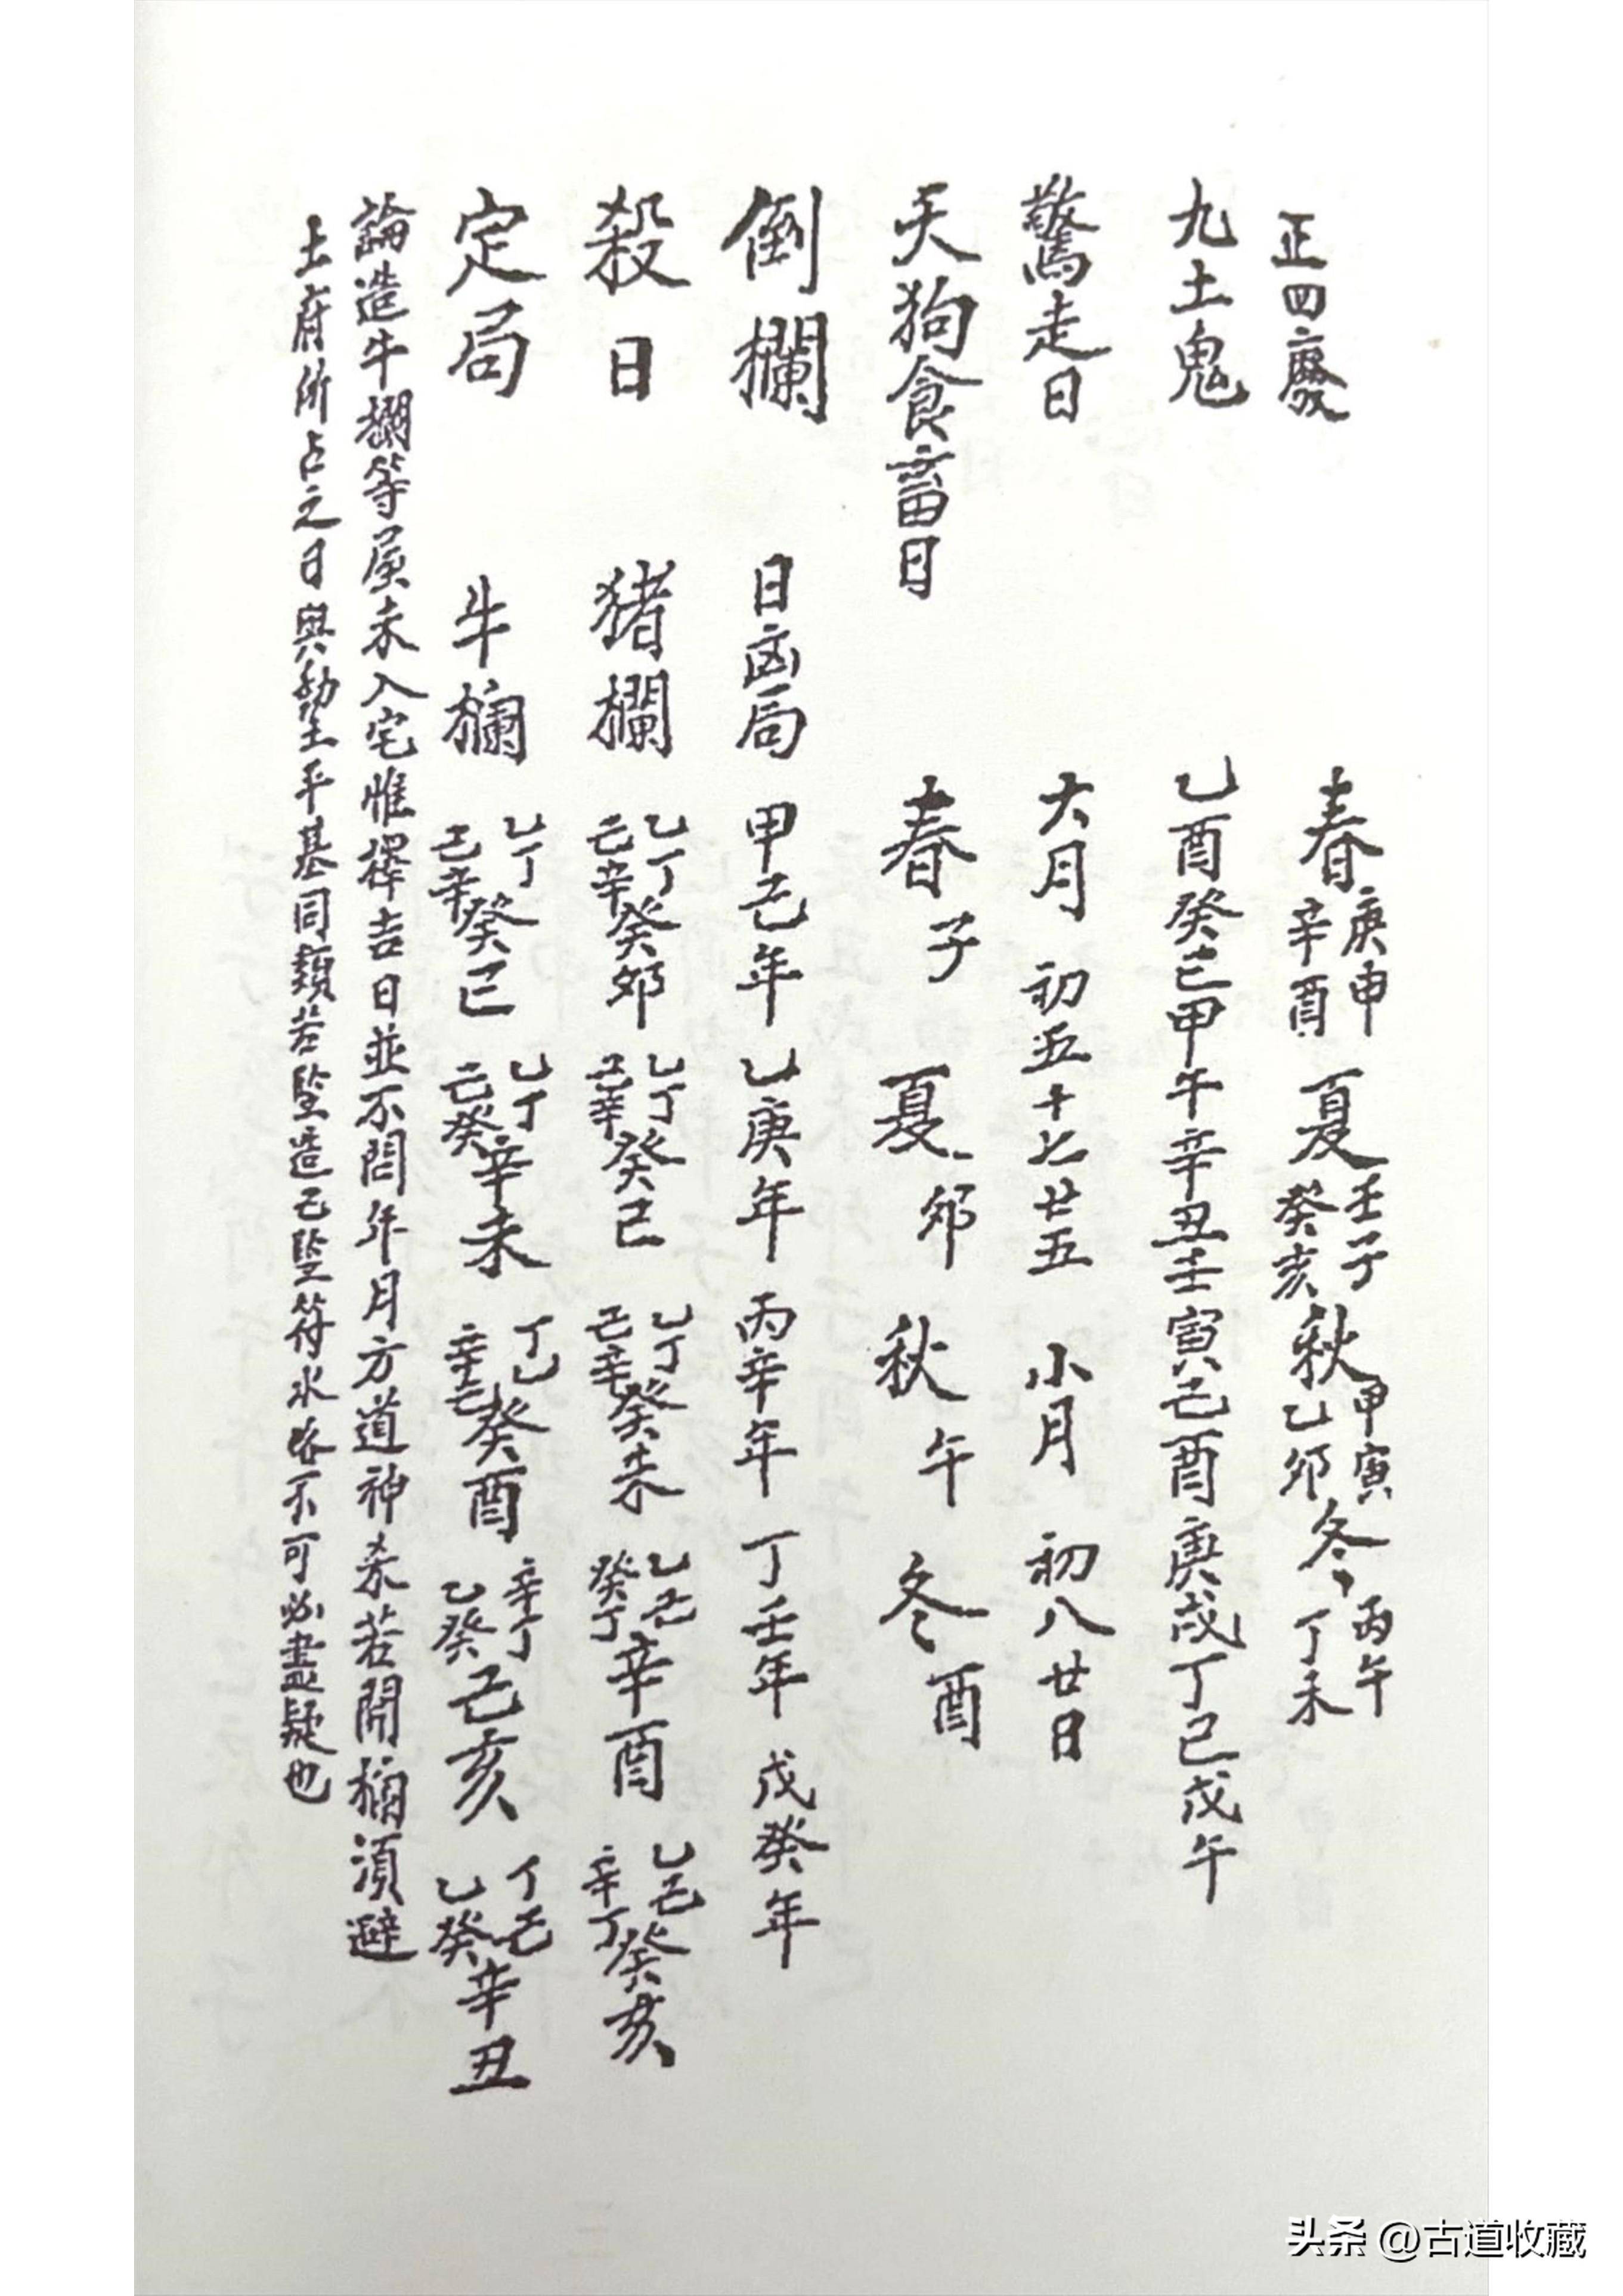 正四廢 春庚申辛酉 夏壬子癸亥 秋甲寅乙卯 冬丙午丁未
九土鬼 乙酉癸巳甲午辛丑壬寅己酉庚戌丁巳戊午
驚走日 大月 初五十七廿五 小月 初八廿日
天狗食畜日 春子 夏卯 秋午 冬酉
倒欄 日凶局 甲己年 乙庚年 丙辛年 丁壬年 戊癸年
殺日 猪欄 乙丁己辛癸卯 乙丁己辛癸巳 乙丁己辛癸未 乙己癸丁辛酉 乙己辛丁癸亥
定局 牛欄 乙丁己辛癸巳 乙丁己癸辛未 丁乙辛己癸酉 辛丁乙癸己亥 丁己乙癸辛丑
論造牛欄等屋未入宅惟擇吉日並不問年月方道神杀若開福須避
土府所占之日與動土平基同類若竪造已竪符水咯不可必盡疑也
头条 @古道收藏